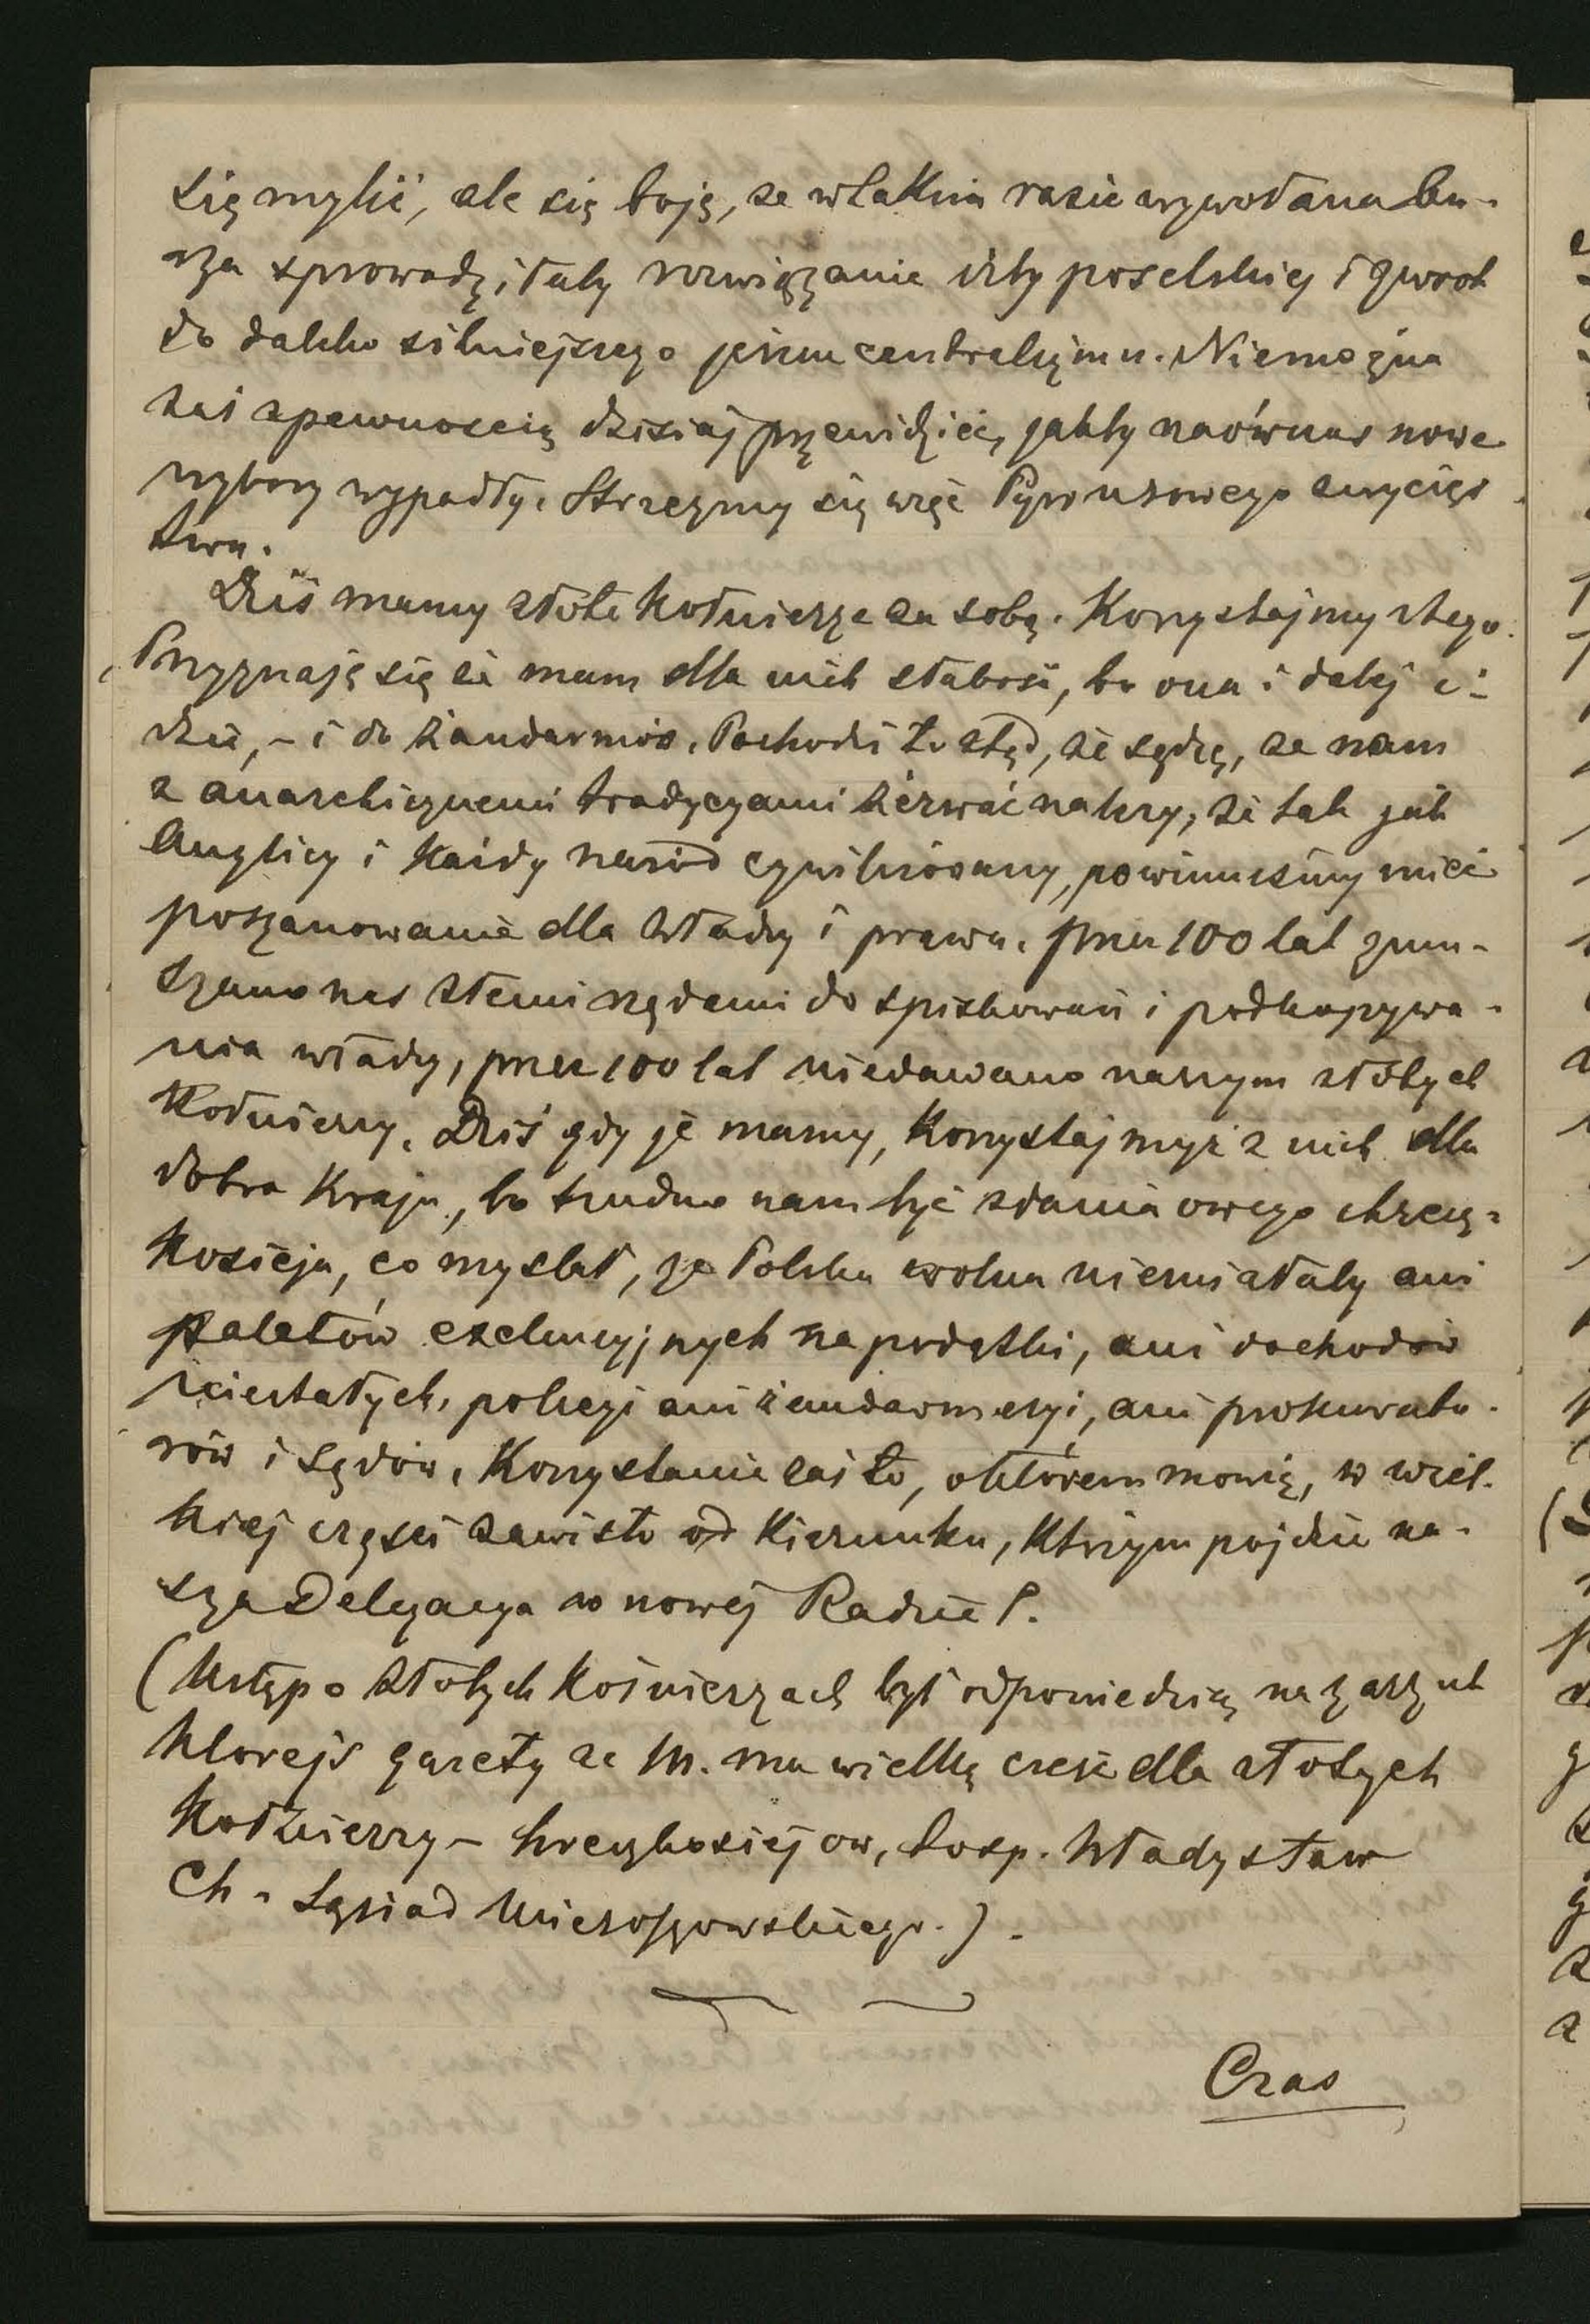 się mylić, ale się boję, że w takim razie wywołana bu-
rza sprowadziłaby rozwiązanie izby poselskiej i zwrot
do daleko silniejszego jeszcze centralizmu. Niemożna
zaś z pewnością dzisiaj przewidzieć, jakby naówczas nowe
wybory wypadły. Strzeżmy się więc Pyrrusowego zwycięs
twa.
Dziś mamy złote kołnierze za sobą. Korzystajmy z tego.
Przyznaję się że mam dla nich słabość, bo ona i dalej i-
dzie, – i do żandarmów. Pochodzi to ztąd, że sądzę, że nam
z anarchicznemi tradycyami zerwać należy, że tak jak
Anglicy i każdy naród cywilizowany, powinniśmy mieć
poszanowanie dla władzy i prawa. Przez 100 lat zmu-
szano nas złemi rządami do spiskowań i podkopywa-
nia władzy, przez 100 lat niedawano naszym złotych
kołnierzy. Dziś gdy je mamy, korzystajmyż z nich dla
dobra kraju, bo trudno nam być zdania owego chrecz-
kosieja, co myślał, że Polska wolna niemiałaby ani
palatów exekucyjnych na podatki, ani dochodów
niestałych, policyi ani żandarmeryi, ani prokurato-
rów i sądów. Korzystanie zaś to, o którem mówię, w wiel-
kiej części zawisło od kierunku, którym pójdzie na-
sza Delegacya w nowej Radzie P.
(Ustęp o złotych kołnierzach był odpowiedzią na zarzut
którejś gazety że M. ma wielką cześć dla złotych
kołnierzy – hreczkosiejow, to sp. Władysław
Ch. Sąsiad Mieroszowskiego.).
Czas